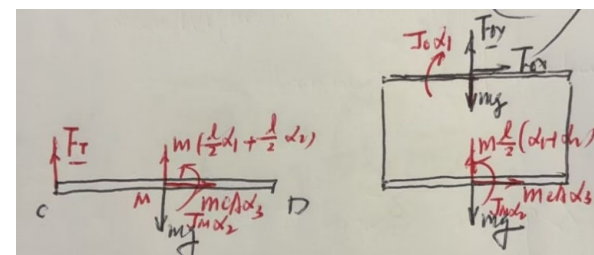 F_T
m(l/2 α₁ + l/2 α₂)
C
M
m c A α₃
D
mg
J_M α₂
J_0 α₁
F_0y
F_0x
mg
m l/2 (α₁+α₂)
m c A α₃
J_M α₂
mg